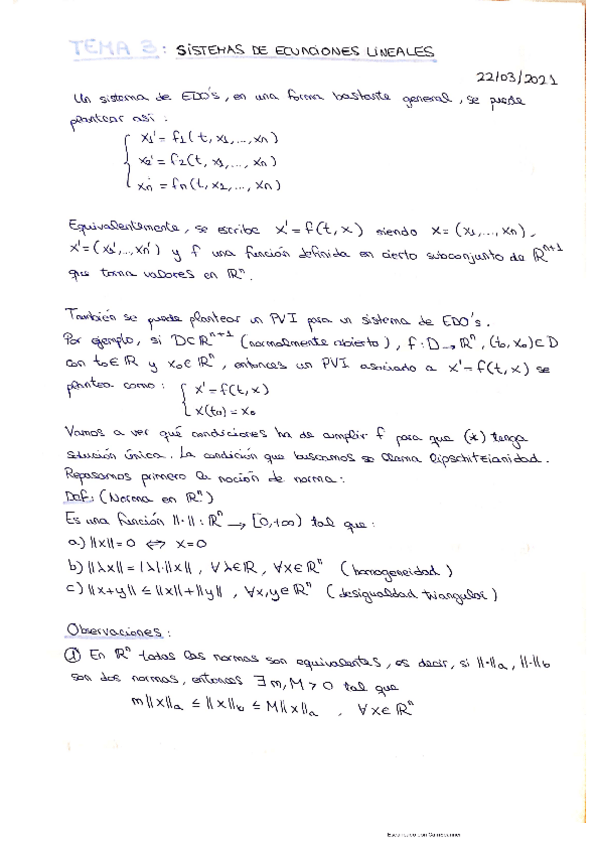 TEMA 3: SISTEMAS DE ECUACIONES LINEALES
22/03/2021
Un sistema de EDO's, en una forma bastante general, se puede
plantear así:
x1' = f1(t, x1,..., xn)
x2' = f2(t, x1,..., xn)
xn' = fn(t, x1,..., xn)
Equivalentemente, se escribe x' = f(t, x) siendo x = (x1,..., xn),
x' = (x1',..., xn') y f una función definida en cierto subconjunto de ℝⁿ⁺¹
que toma valores en ℝⁿ.
También se puede plantear un PVI para un sistema de EDO's.
Por ejemplo, si D⊂ℝⁿ⁺¹ (normalmente abierto), f: D→ℝⁿ, (t0, x0)⊂D
con t0∈ℝ y x0∈ℝⁿ, entonces un PVI asociado a x' = f(t, x) se
plantea como: { x' = f(t, x)
x(t0) = x0
Vamos a ver qué condiciones ha de cumplir f para que (*) tenga
solución única. La condición que buscamos se llama lipschitzianidad.
Repasamos primero la noción de norma:
Def: (Norma en ℝⁿ)
Es una función ||·||: ℝⁿ → [0,+∞) tal que:
a) ||x|| = 0 ⟺ x=0
b) ||λx|| = |λ|·||x||, ∀λ∈ℝ, ∀x∈ℝⁿ (homogeneidad)
c) ||x+y|| ≤ ||x||+||y||, ∀x,y∈ℝⁿ (desigualdad triangular)
Observaciones:
① En ℝⁿ todas las normas son equivalentes, es decir, si ||·||a, ||·||b
son dos normas, entonces ∃m,M>0 tal que
m||x||a ≤ ||x||b ≤ M||x||a, ∀x∈ℝⁿ
Escaneado con CamScanner